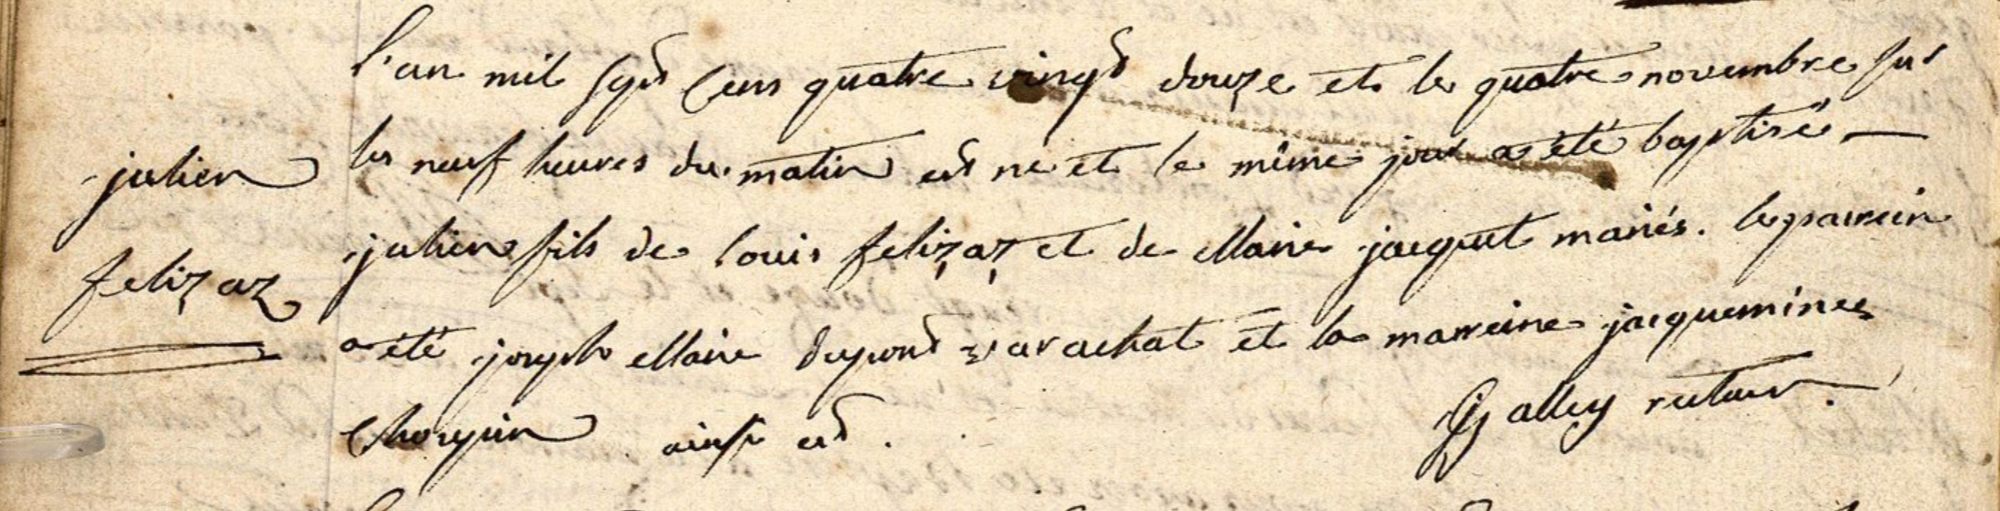 l'an mil sept cens quatre vingt douze et le quatre novembre sur
julien
les neuf heures du matin est ne et le même jour a été baptisé
julien fils de louis felizaz et de Marie jacquet mariés. le parrein
felizaz
a été joseph Marie dupont varachat et la marreine jacquemine
Chorpin ainsi est.
Galley recteur.